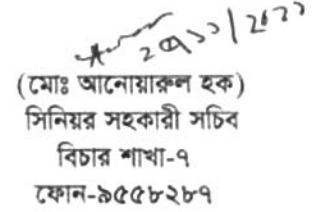 (মোঃ আনোয়ারুল হক)
সিনিয়র সহকারী সচিব
বিচার শাখা-৭
ফোন-৯৫৫৮২৮৭